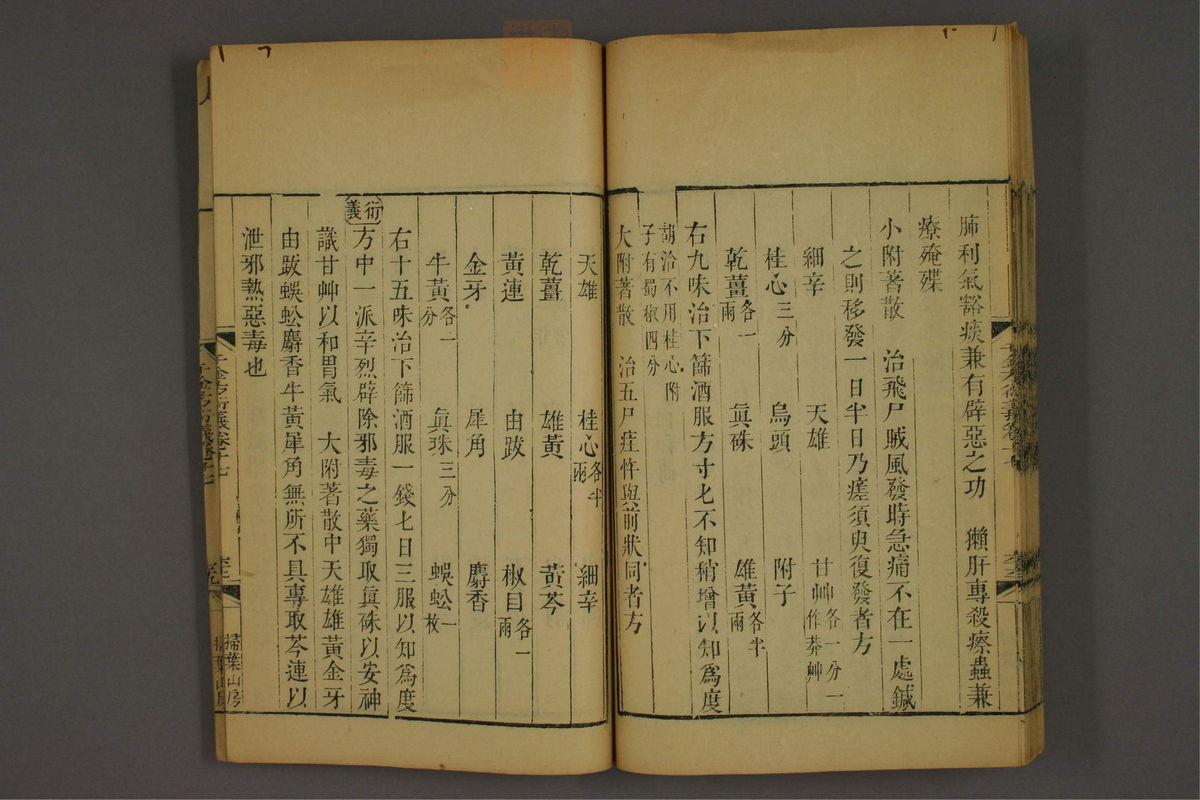 肺利氣豁痰兼有辟惡之功　獺肝專殺瘵蟲兼
療殗殜
小附著散　治飛尸賊風發時急痛不在一處鍼
之則移發一日半日乃瘥須臾復發者方
細辛　天雄　甘艸各一分一作莽艸
桂心三分　烏頭　附子
乾薑各一兩　眞硃　雄黃各半兩
右九味治下篩酒服方寸匕不知稍增以知爲度
胡洽不用桂心附
子有蜀椒四分
大附著散　治五尸疰忤與前狀同者方
天雄　桂心各半兩　細辛
乾薑　雄黃　黃芩
黃連　由跋　椒目各一兩
金牙　犀角　麝香
牛黃各一分　眞珠三分　蜈蚣一枚
右十五味治下篩酒服一錢七日三服以知爲度
衍義
方中一派辛烈辟除邪毒之藥獨取眞硃以安神
識甘艸以和胃氣　大附著散中天雄雄黃金牙
由跋蜈蚣麝香牛黃犀角無所不具專取芩連以
泄邪熱惡毒也
千金方衍義卷十七
掃葉山房